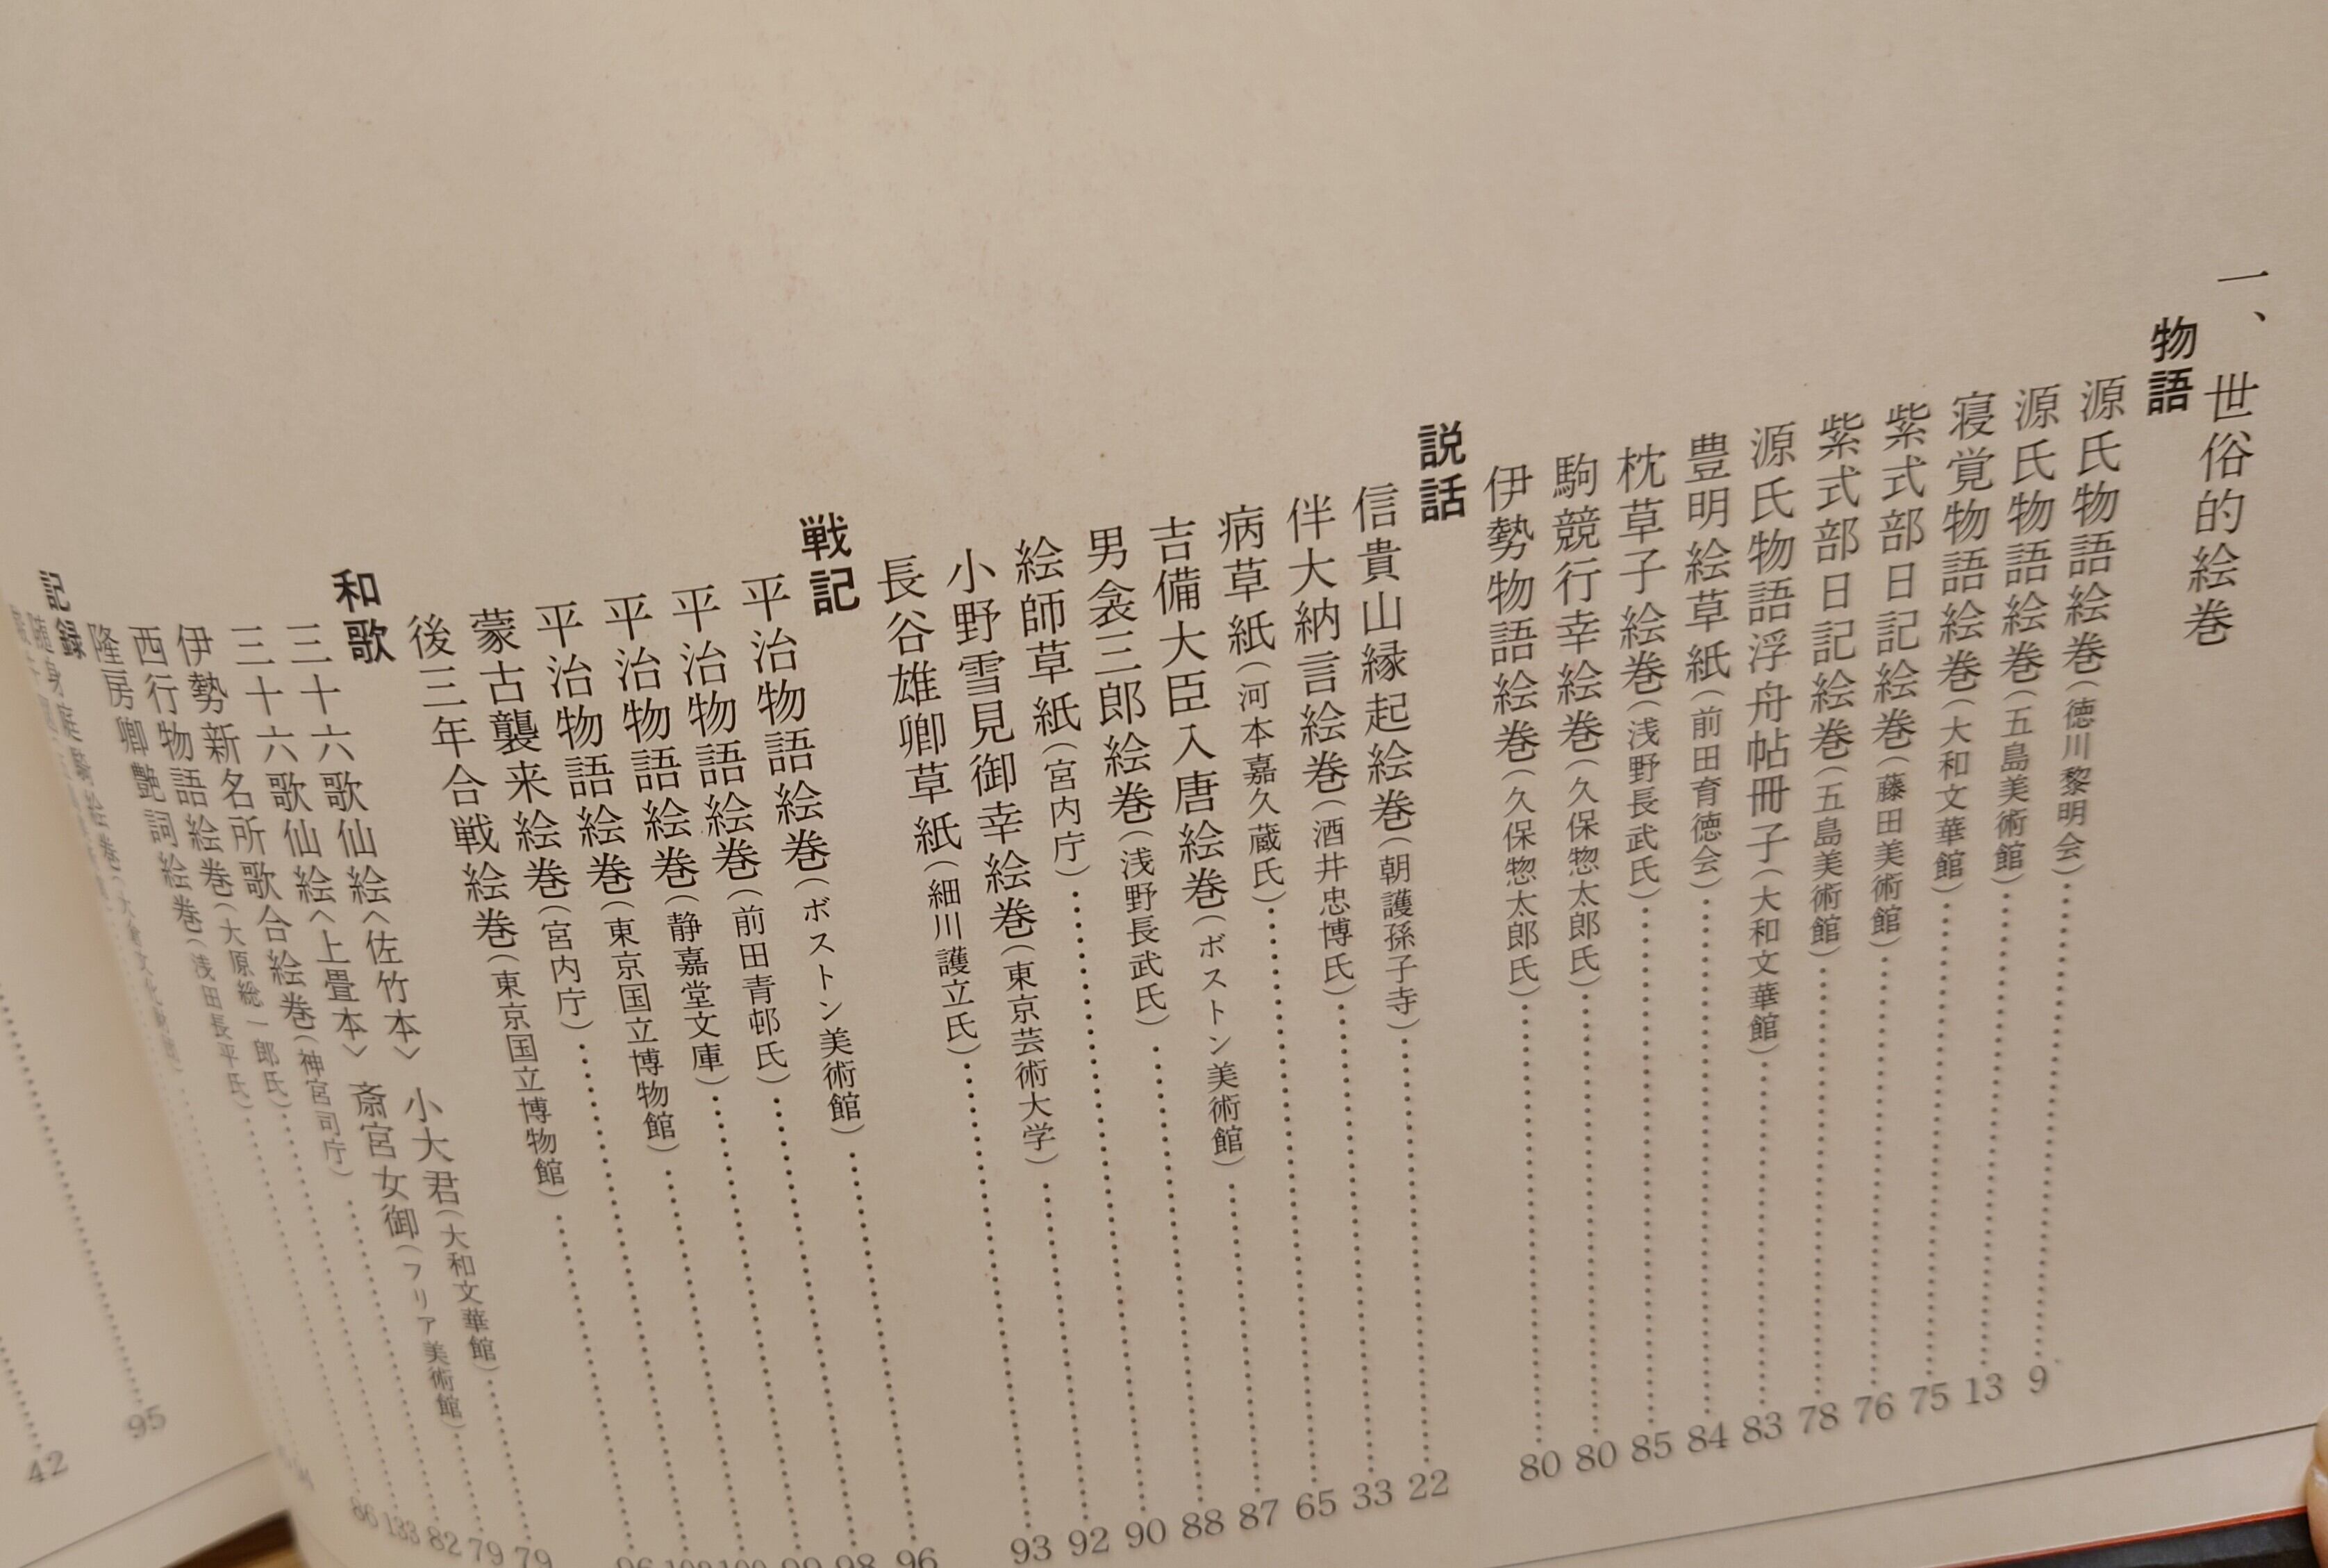 一、世俗的絵巻
物語
源氏物語絵巻（徳川黎明会）……9
源氏物語絵巻（五島美術館）……13
寝覚物語絵巻（大和文華館）……75
紫式部日記絵巻（藤田美術館）……76
紫式部日記絵巻（五島美術館）……78
源氏物語浮舟帖冊子（大和文華館）……83
豊明絵草紙（前田育徳会）……84
枕草子絵巻（浅野長武氏）……85
駒競行幸絵巻（久保惣太郎氏）……80
伊勢物語絵巻（久保惣太郎氏）……80
説話
信貴山縁起絵巻（朝護孫子寺）……22
伴大納言絵巻（酒井忠博氏）……33
病草紙（河本嘉久蔵氏）……65
吉備大臣入唐絵巻（ボストン美術館）……87
男衾三郎絵巻（浅野長武氏）……88
絵師草紙（宮内庁）……90
小野雪見御幸絵巻（東京芸術大学）……92
長谷雄卿草紙（細川護立氏）……93
戦記
平治物語絵巻（ボストン美術館）……96
平治物語絵巻（前田青邨氏）……98
平治物語絵巻（静嘉堂文庫）……99
平治物語絵巻（東京国立博物館）……
蒙古襲来絵巻（宮内庁）……
後三年合戦絵巻（東京国立博物館）……96
和歌
三十六歌仙絵〈佐竹本〉 小大君（大和文華館）……79
三十六歌仙絵〈上畳本〉 斎宮女御（フリア美術館）……79
伊勢新名所歌合絵巻（神宮司庁）……82
西行物語絵巻（大原総一郎氏）……133
隆房卿艶詞絵巻（浅田長平氏）……86
記録
随身庭騎絵巻
95
42